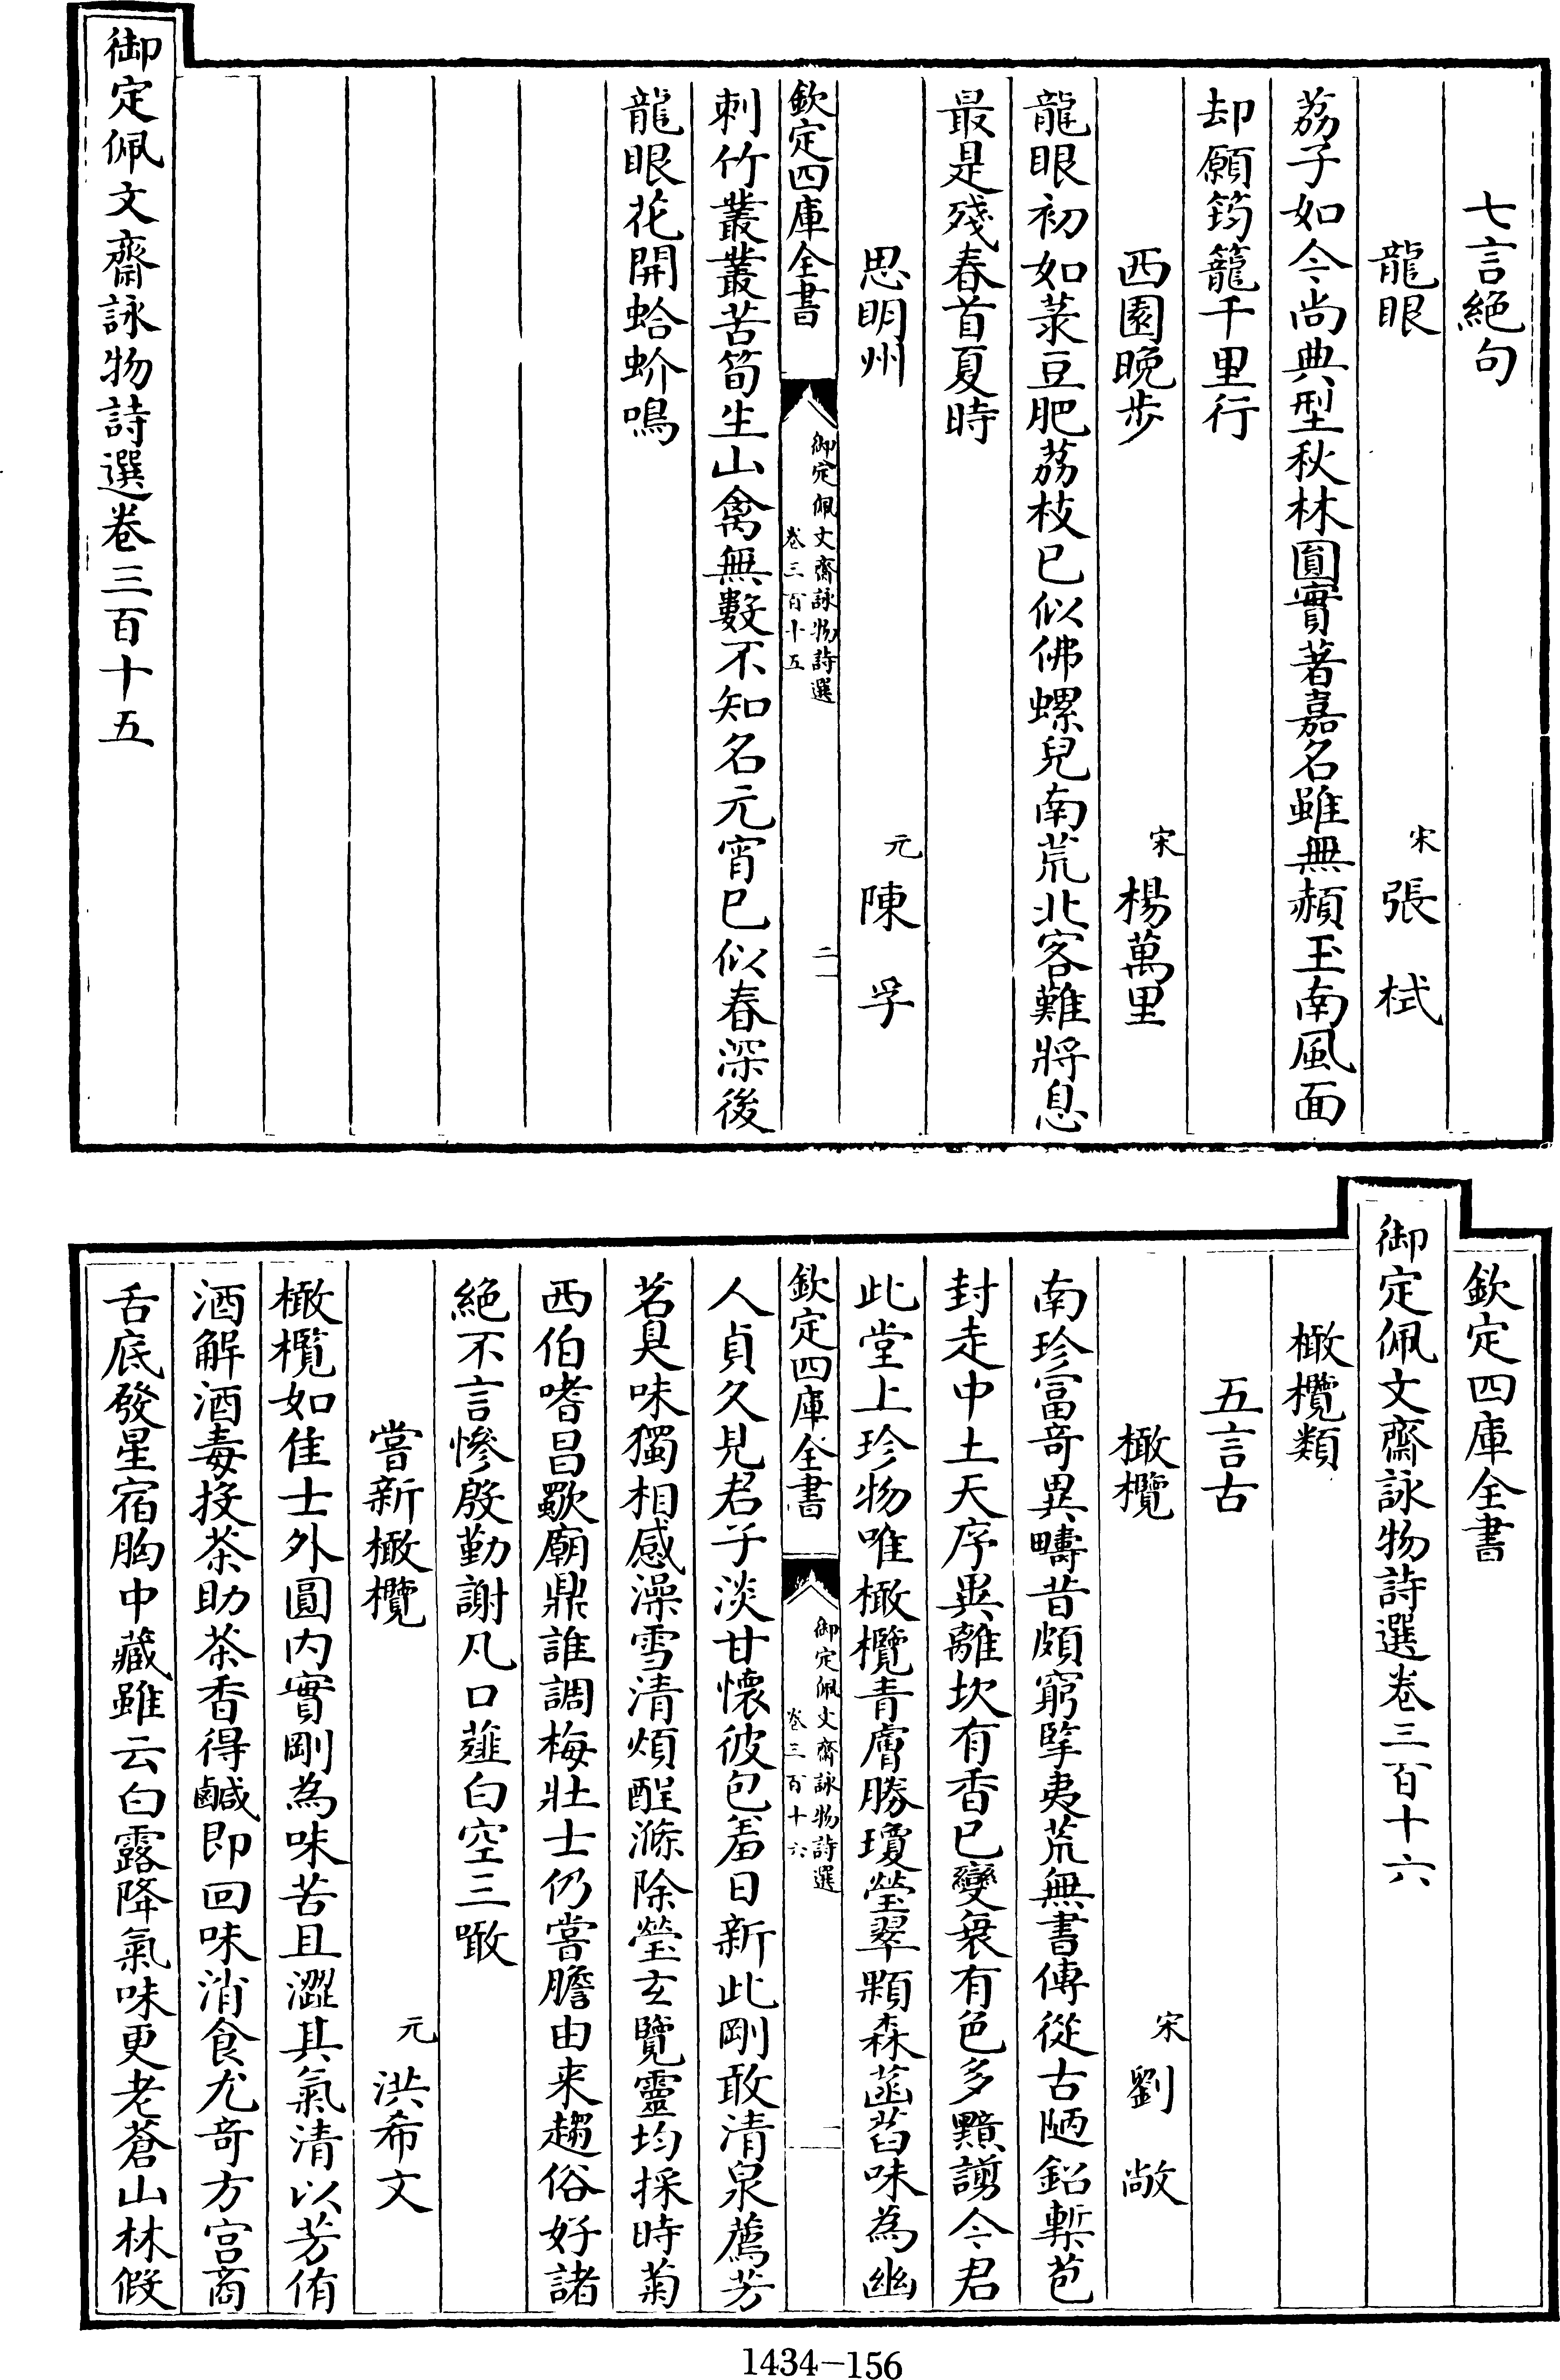 七言絶句
龍眼　宋　張栻
荔子如今尚典型秋林圓實著嘉名雖無頳玉南風面
却願筠籠千里行
西園晚歩　宋　楊萬里
龍眼初如菉豆肥荔枝已似佛螺兒南荒北客難將息
最是殘春首夏時
思明州　元　陳孚
欽定四庫全書　御定佩文齋詠物詩選　卷三百十五　二
刺竹叢叢苦筍生山禽無數不知名元宵已似春深後
龍眼花開蛤蚧鳴
御定佩文齋詠物詩選卷三百十五
欽定四庫全書
御定佩文齋詠物詩選卷三百十六
橄欖類
五言古
橄欖　宋　劉敞
南珍富奇異疇昔頗窮擥夷荒無書傳從古陋鉛槧苞
封走中土天序異離坎有香已變衰有色多黯𪒠今君
此堂上珍物唯橄欖青膚勝瓊瑩翠顆森菡萏味為幽
欽定四庫全書　御定佩文齋詠物詩選　卷三百十六　一
人貞久見君子淡甘懷彼包羞日新此剛敢清泉薦芳
茗臭味獨相感澡雪清煩酲滌除瑩玄覽靈均採時菊
西伯嗜昌歜廟鼎誰調梅壯士仍嘗膽由来趨俗好諸
絶不言慘殷勤謝凡口薤白空三噉
嘗新橄欖　元　洪希文
橄欖如佳士外圓内實剛為味苦且澀其氣清以芳侑
酒解酒毒投茶助茶香得鹹即回味消食尤奇方宫商
舌底發星宿胸中藏雖云白露降氣味更老蒼山林假
1434-156